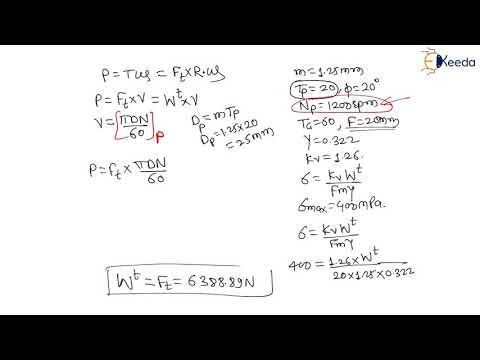 P = Tω = Ft×R·ω
P = Ft×V = W^t×V
V = [πDN/60]P
D = mTp
P
Dp = 1.25×20
= 25mm
P = Ft × πDN/60
W^t = Ft = 6388.89N
EKeeda
m = 1.25mm
Tp = 20, φ = 20°
Np = 1200rpm
TG = 60, F = 20mm
Y = 0.322
Kv = 1.26
σ = KvW^t/FmY
σmax = 400MPa.
σ = KvW^t/FmY
400 = 1.26×W^t/20×1.25×0.322